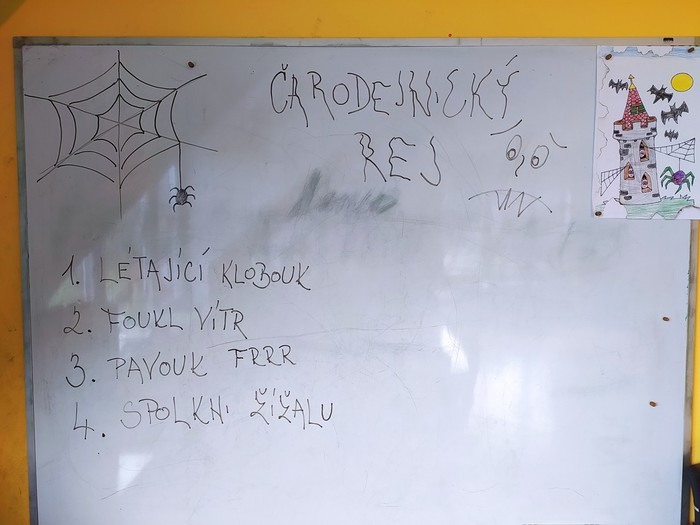 ČARODEJNICKÝ
REJ
1. LÉTAJÍCÍ KLOBOUK
2. FOUKL VÍTR
3. PAVOUK FRRR
4. SPOLKNI ŽÍŽALU